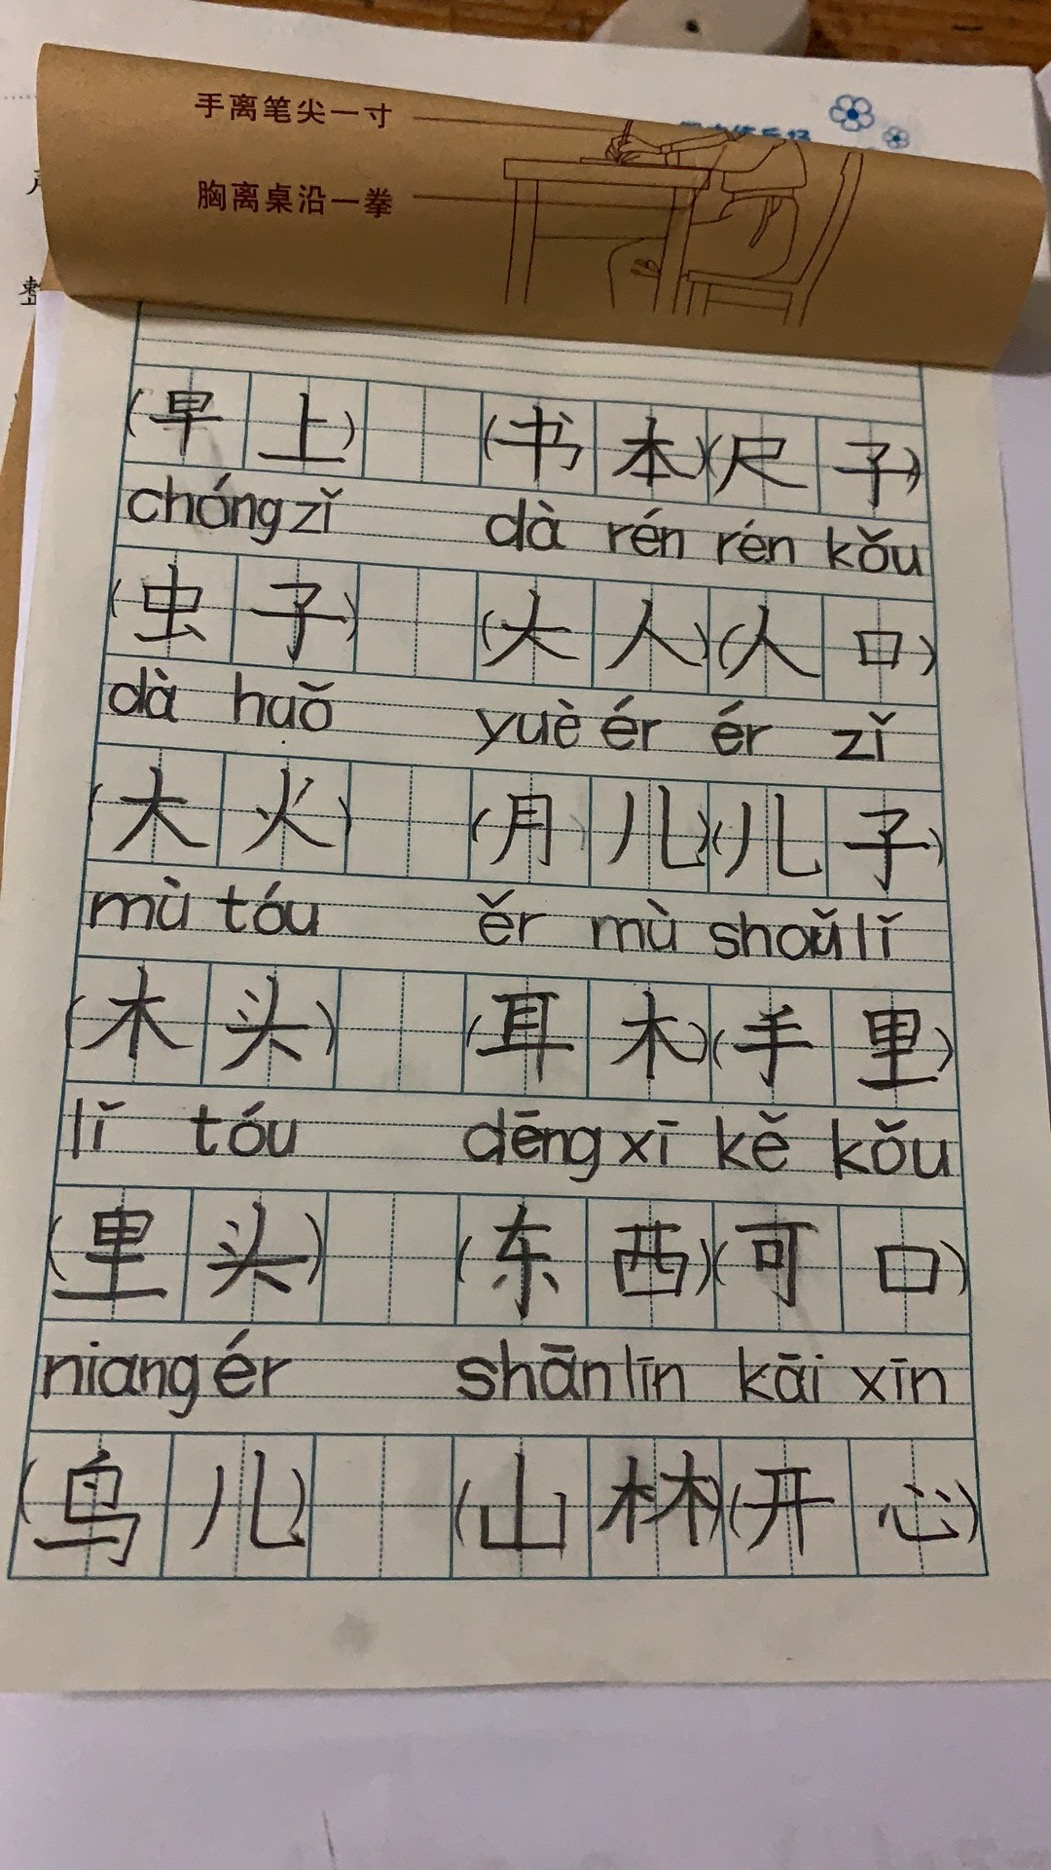 手离笔尖一寸
胸离桌沿一拳
(早上) (书本)(尺子)
chóng zǐ dà rén rén kǒu
(虫子) (大人)(人口)
dà huǒ yuè ér ér zǐ
(大火) (月儿)(儿子)
mù tóu ěr mù shoǔ lǐ
(木头) (耳木)(手里)
lǐ tóu dēng xī kě kǒu
(里头) (东西)(可口)
niang ér shān līn kāi xīn
(鸟儿) (山林)(开心)